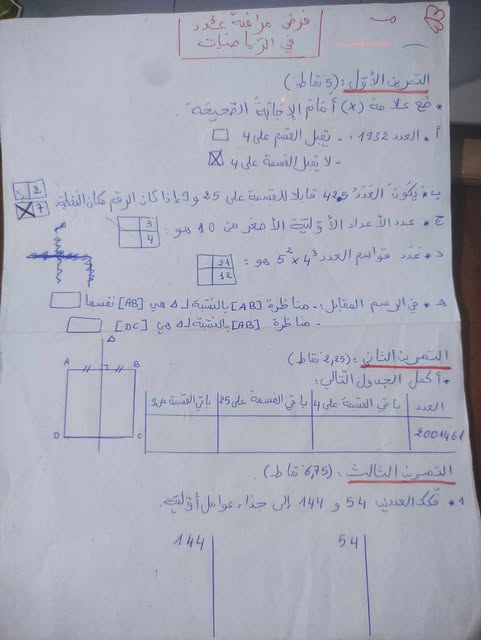 فرض مراقبة عدد
في الرياضيات
التمرين الأول: (5 نقاط)
* ضع علامة (x) أمام الإجابة الصحيحة.
أ* العدد 1932: - يقبل القسمة على 4
- لا يقبل القسمة على 4
ب* يكون العدد 42.5 قابلا للقسمة على 25 و 9 إذا كان الرقم مكان النقطة
2
7
ج* عدد الأعداد الأولية الأصغر من 10 هو:
3
4
د* عدد قواسم العدد 5²×4³ هو:
21
12
هـ* في الرسم المقابل: - مناظرة [AB] بالنسبة لـ Δ هي [AB] نفسها
- مناظرة [AB] بالنسبة لـ Δ هي [DC]
Δ
A B
D C
التمرين الثاني: (2,25 نقاط)
* أكمل الجدول التالي:
العدد باقي القسمة على 4 باقي القسمة على 25 باقي القسمة على
2001461
التمرين الثالث: (6,75 نقاط).
1* فكك العددين 54 و 144 إلى جذاء عوامل أولية.
144 54